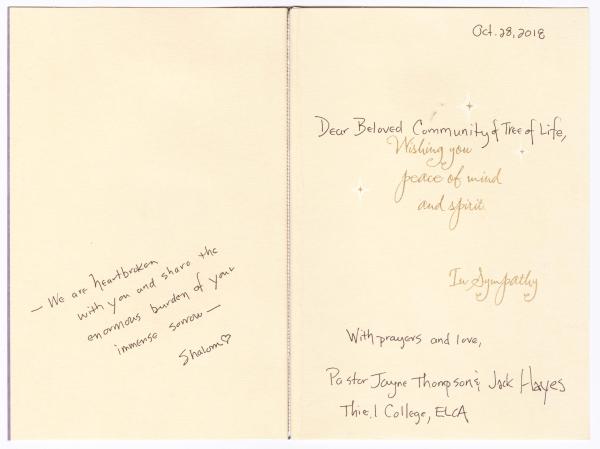 — We are heartbroken
with you and share the
enormous burden of your
immense sorrow —
Shalom ♡
Oct. 28, 2018
Dear Beloved Community of Tree of Life,
Wishing you
peace of mind
and spirit
In Sympathy
With prayers and love,
Pastor Jayne Thompson & Jack Hayes
Thiel College, ELCA